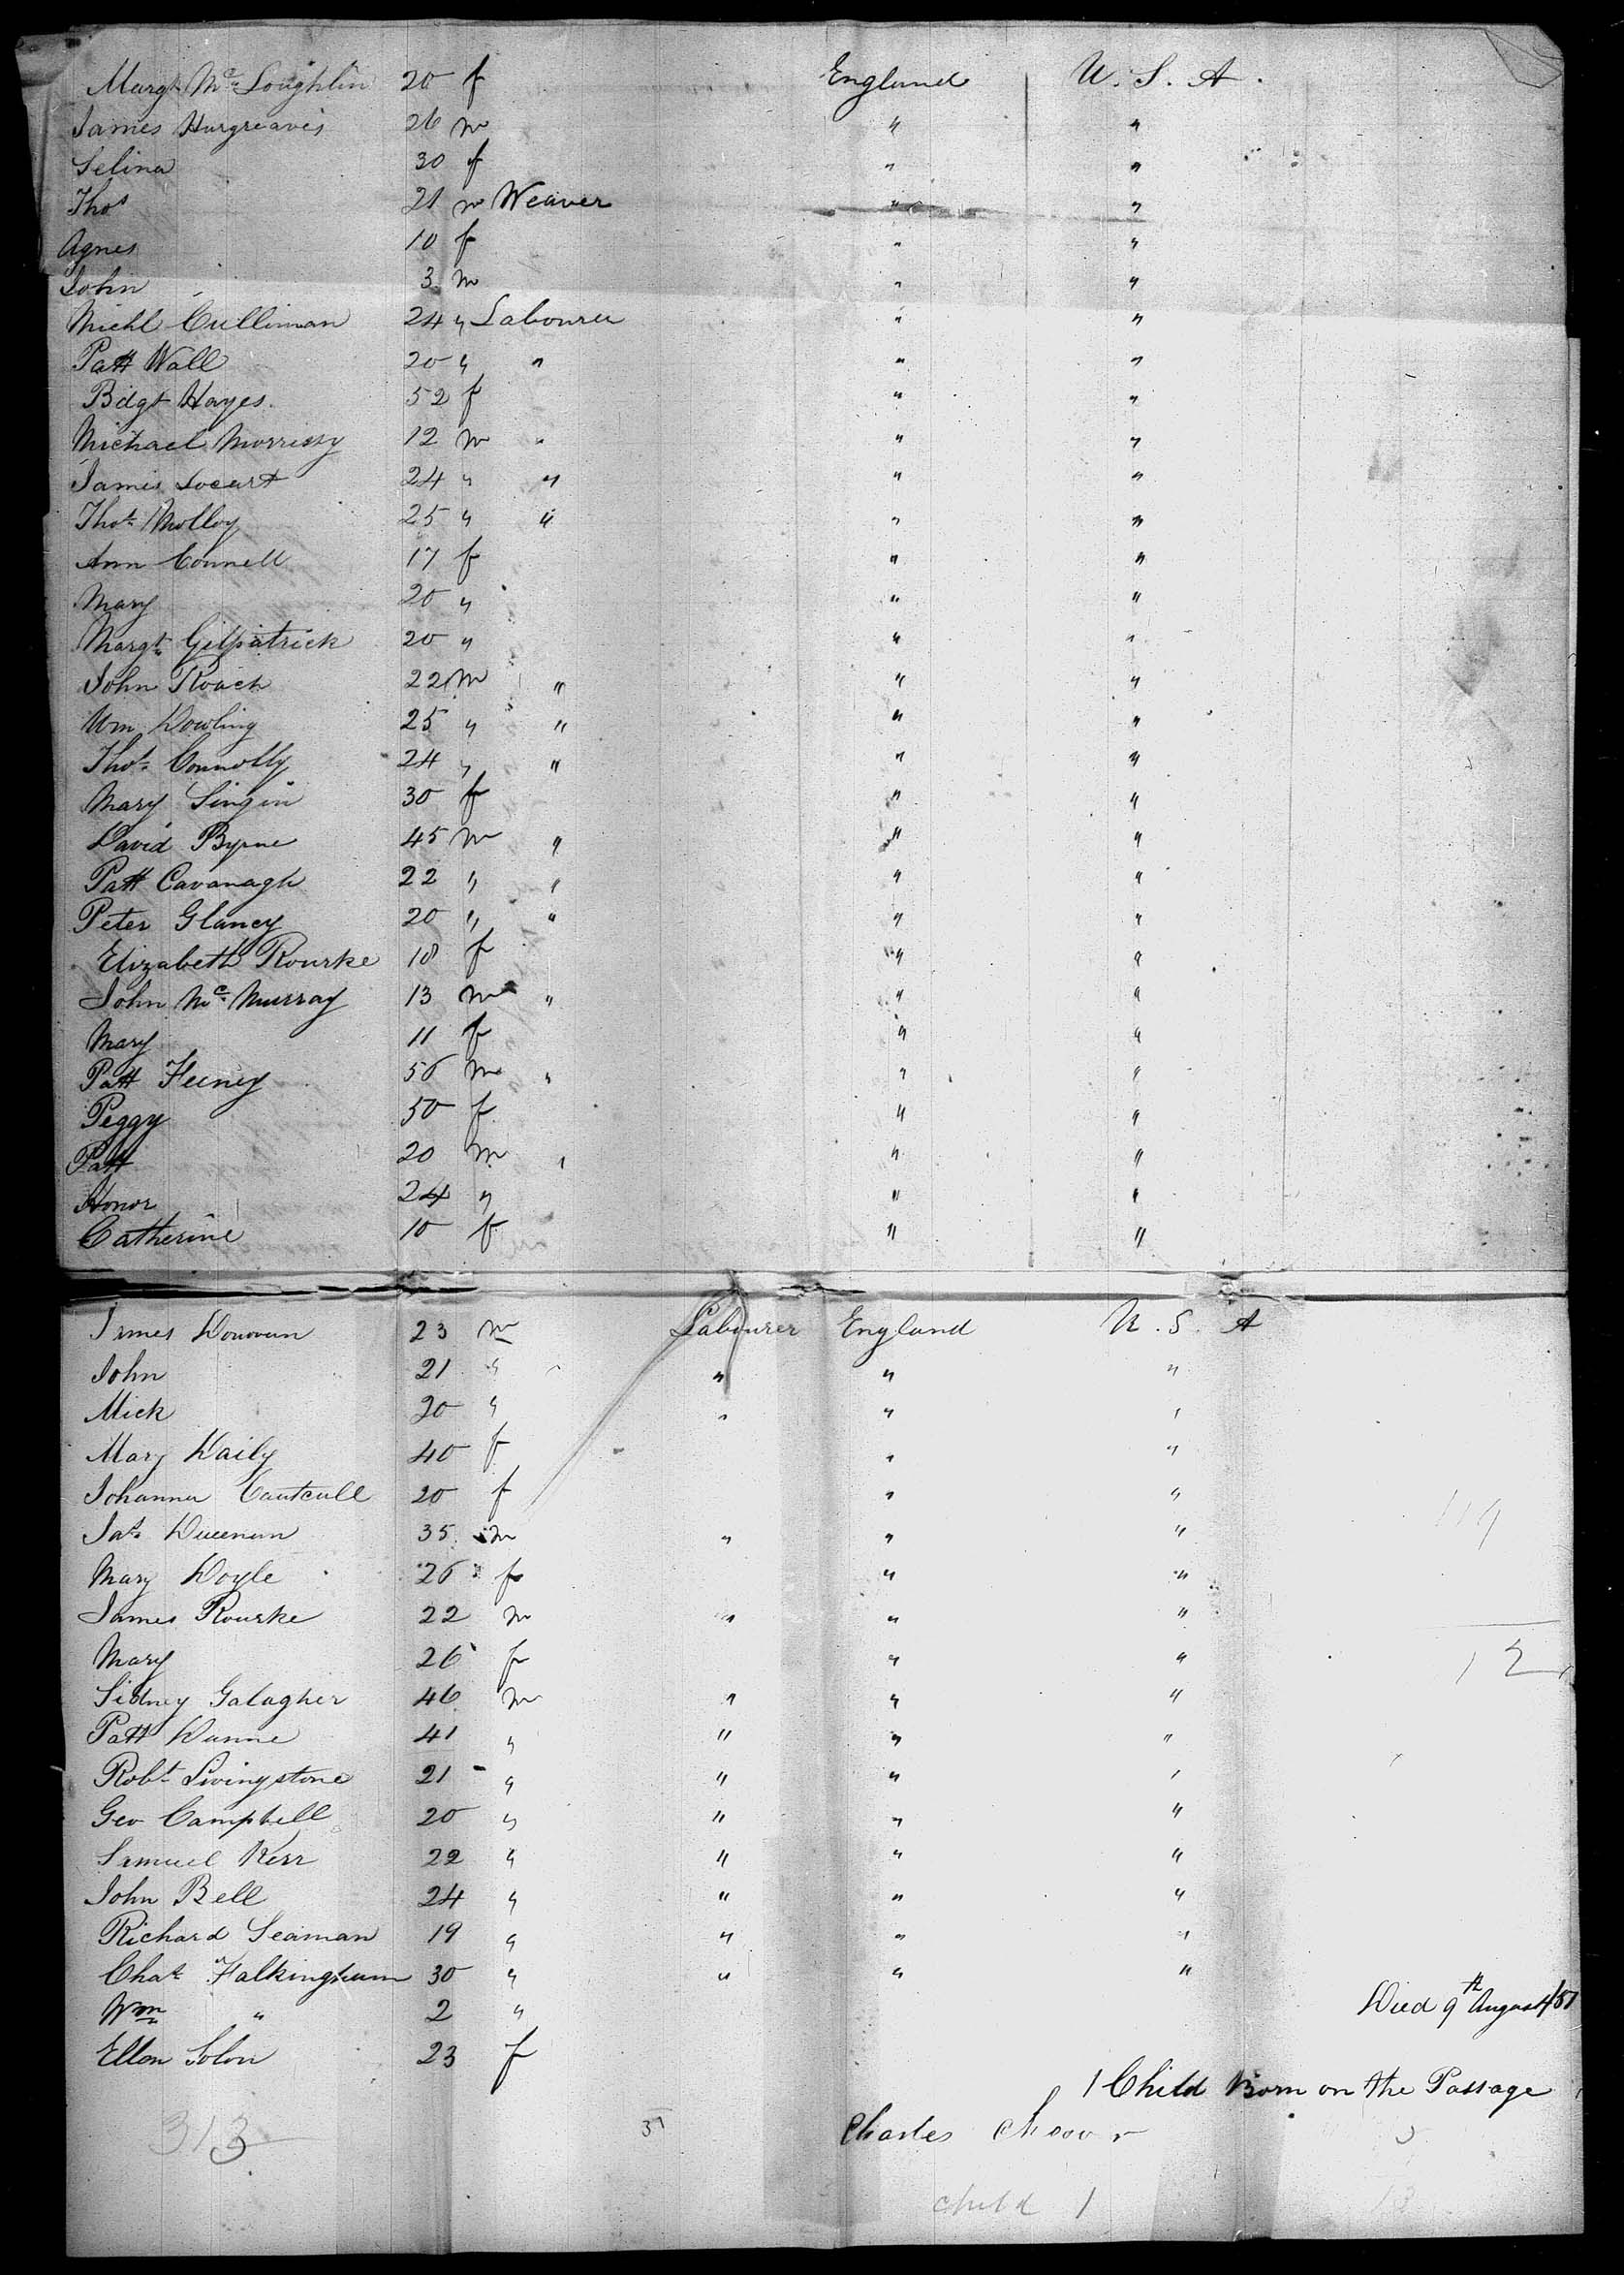 Margt McLoughlin 20 f England U. S. A.
James Hargreaves 26 m " "
Selina 30 f " "
Thos 21 m Weaver " "
Agnes 10 f " "
John 3 m " "
Michl Cullinan 24 " Labourer " "
Patt Wall 20 " " " "
Bdgt Hayes 52 f " "
Michael Morrissy 12 m " " "
James Locart 24 " " " "
Thos Molloy 25 " " " "
Ann Connell 17 f " "
Mary 20 " " "
Margt Gilpatrick 20 " " "
John Roach 22 m " " "
Wm Dowling 25 " " " "
Thos Connolly 24 " " " "
Mary Singin 30 f " "
David Byrne 45 m " " "
Patt Cavanagh 22 " " " "
Peter Glancy 20 " " " "
Elizabeth Rourke 18 f " "
John McMurray 13 m " " "
Mary 11 f " "
Patt Feeney 56 m " " "
Peggy 50 f " "
Patt 20 m " " "
Honor 24 " " "
Catherine 10 f " "
James Donovan 23 m Labourer England U. S. A
John 21 " " " "
Mick 20 " " " "
Mary Daily 40 f " "
Johanna 20 f " "
Jas 35 m " " "
Mary Doyle 26 f " "
James Rourke 22 m " " "
Mary 26 f " "
Sidney Galagher 46 m " " "
Patt Dunne 41 " " " "
Robt Livingstone 21 " " " "
Geo Campbell 20 " " " "
Samuel Kerr 22 " " " "
John Bell 24 " " " "
Richard Seaman 19 " " " "
Chas Falkingham 30 " " " "
Wm " 2 " Died 9th August/51
Ellen Solon 23 f
1 Child Born on the Passage
313 Charles
child 1